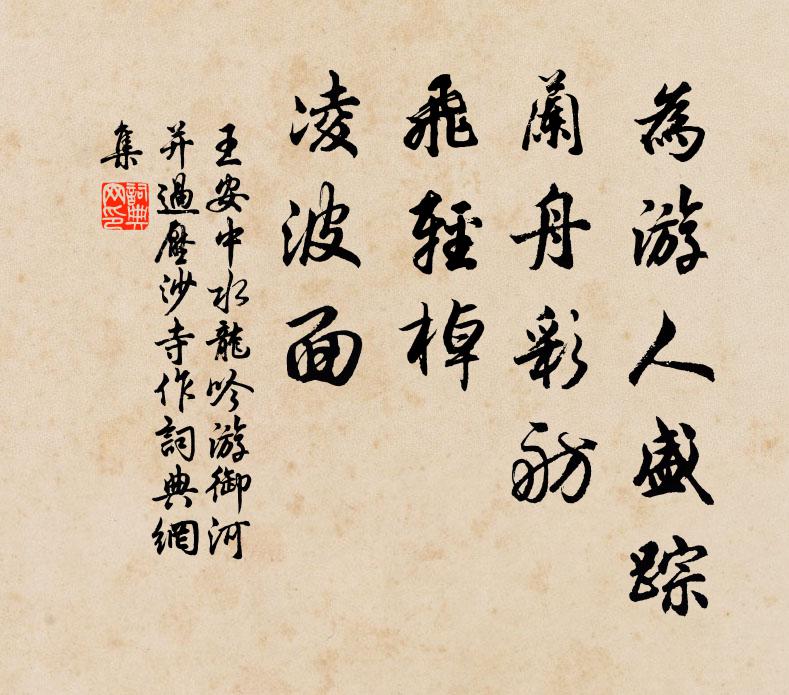 為游人盛踪
蘭舟彩舫
飛輕棹
凌波面
王安中水龍吟游御河
并過壓沙寺作詞典網
集
詞典
网印